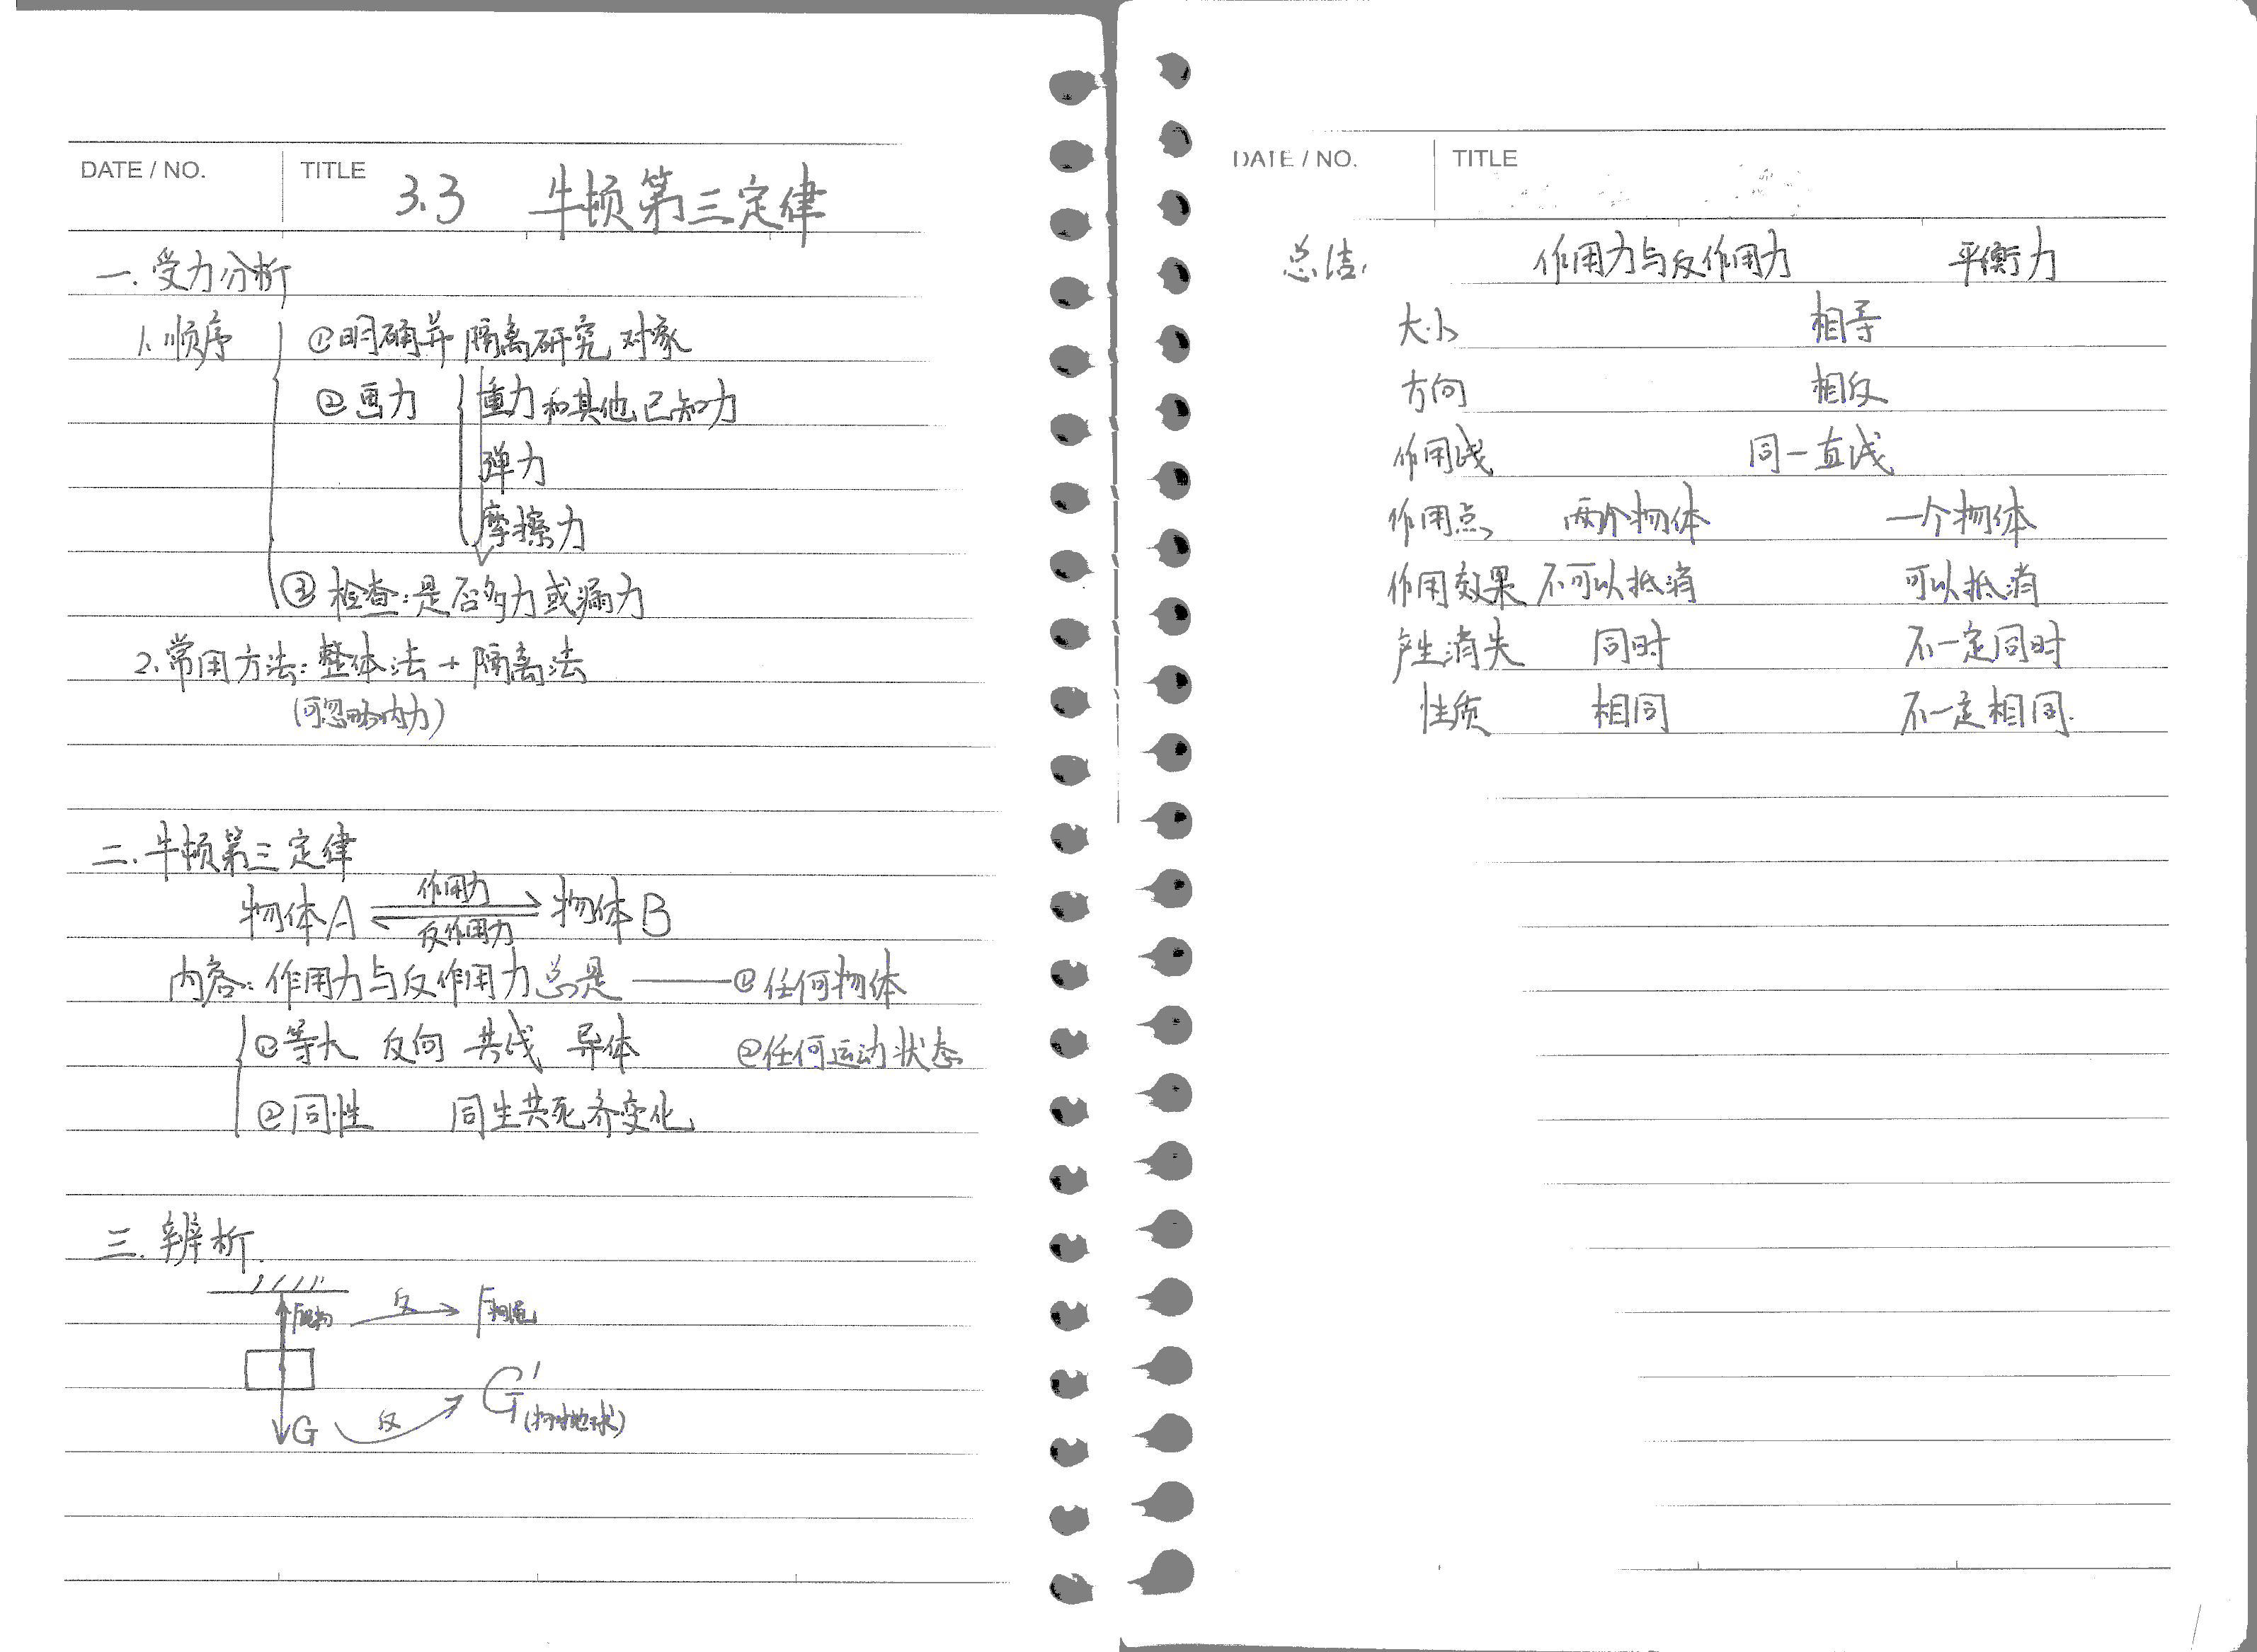 DATE / NO. TITLE 3.3 牛顿第三定律
一.受力分析
1.顺序 ①明确并隔离研究对象
②画力 重力和其他已知力
弹力
摩擦力
③检查:是否多力或漏力
2.常用方法:整体法+隔离法
(可忽略内力)
二.牛顿第三定律
作用力
物体A 物体B
反作用力
内容:作用力与反作用力总是——①任何物体
①等大 反向 共线 异体 ②任何运动状态
②同性 同生共死齐变化
三.辨析.
F绳物 反 F物绳
G 反 G'(物对地球)
DATE / NO. TITLE
总结: 作用力与反作用力 平衡力
大小 相等
方向 相反
作用线 同一直线
作用点 两个物体 一个物体
作用效果 不可以抵消 可以抵消
产生消失 同时 不一定同时
性质 相同 不一定相同.